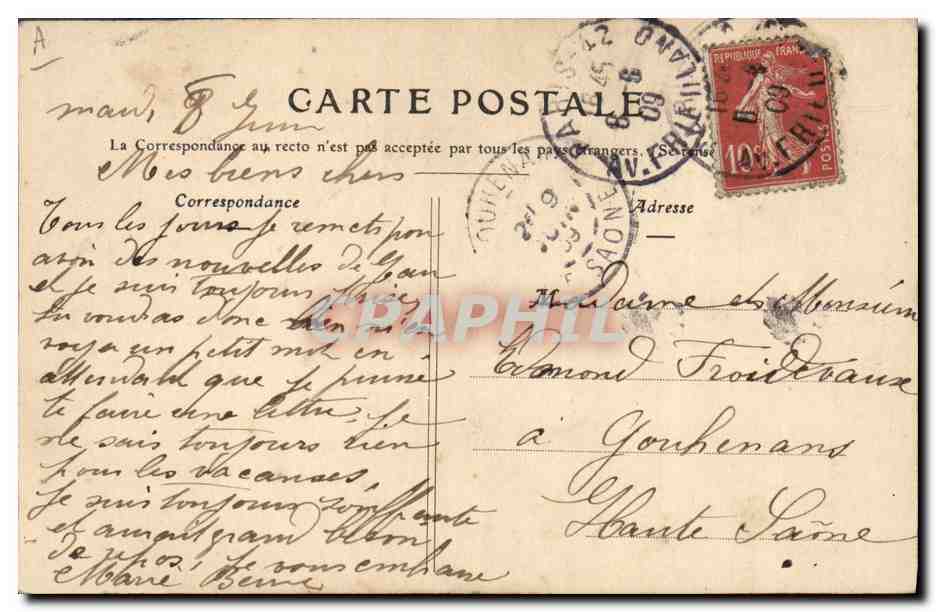 A
mardi 8 Juin
CARTE POSTALE
La Correspondance au recto n'est pas acceptée par tous les pays étrangers. (Se rense
Mes biens chers
Correspondance
Adresse
Tous les jours je remets pour
avoir des nouvelles de
et je suis toujours prise
tu voudras donc bien m'en
voyer un petit mot en
attendant que je puisse
te faire une lettre, je
ne sais toujours rien
pour les vacances,
je suis toujours souffrante
et aurait grand besoin
de repos, je vous embrasse
Marie
Madame et Monsieur
Edmond Froidevaux
à Gouhenans
Haute Saône
REPUBLIQUE FRAN
10
POSTES
PARIS 42
8 - 6
09
AV. FRIEDLAND
OUHENA
9
JUIN
09
SAONE
CPAPHIL